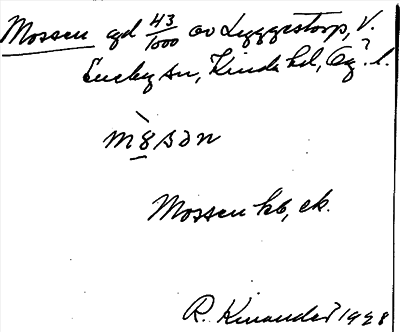 Mossen gd 43/1000 av Lyggestorp, V.
Eneby sn, Kinda hd, Ög. l.
mɞsɒn
Mossen kb, ek.
R. Kinander 1928